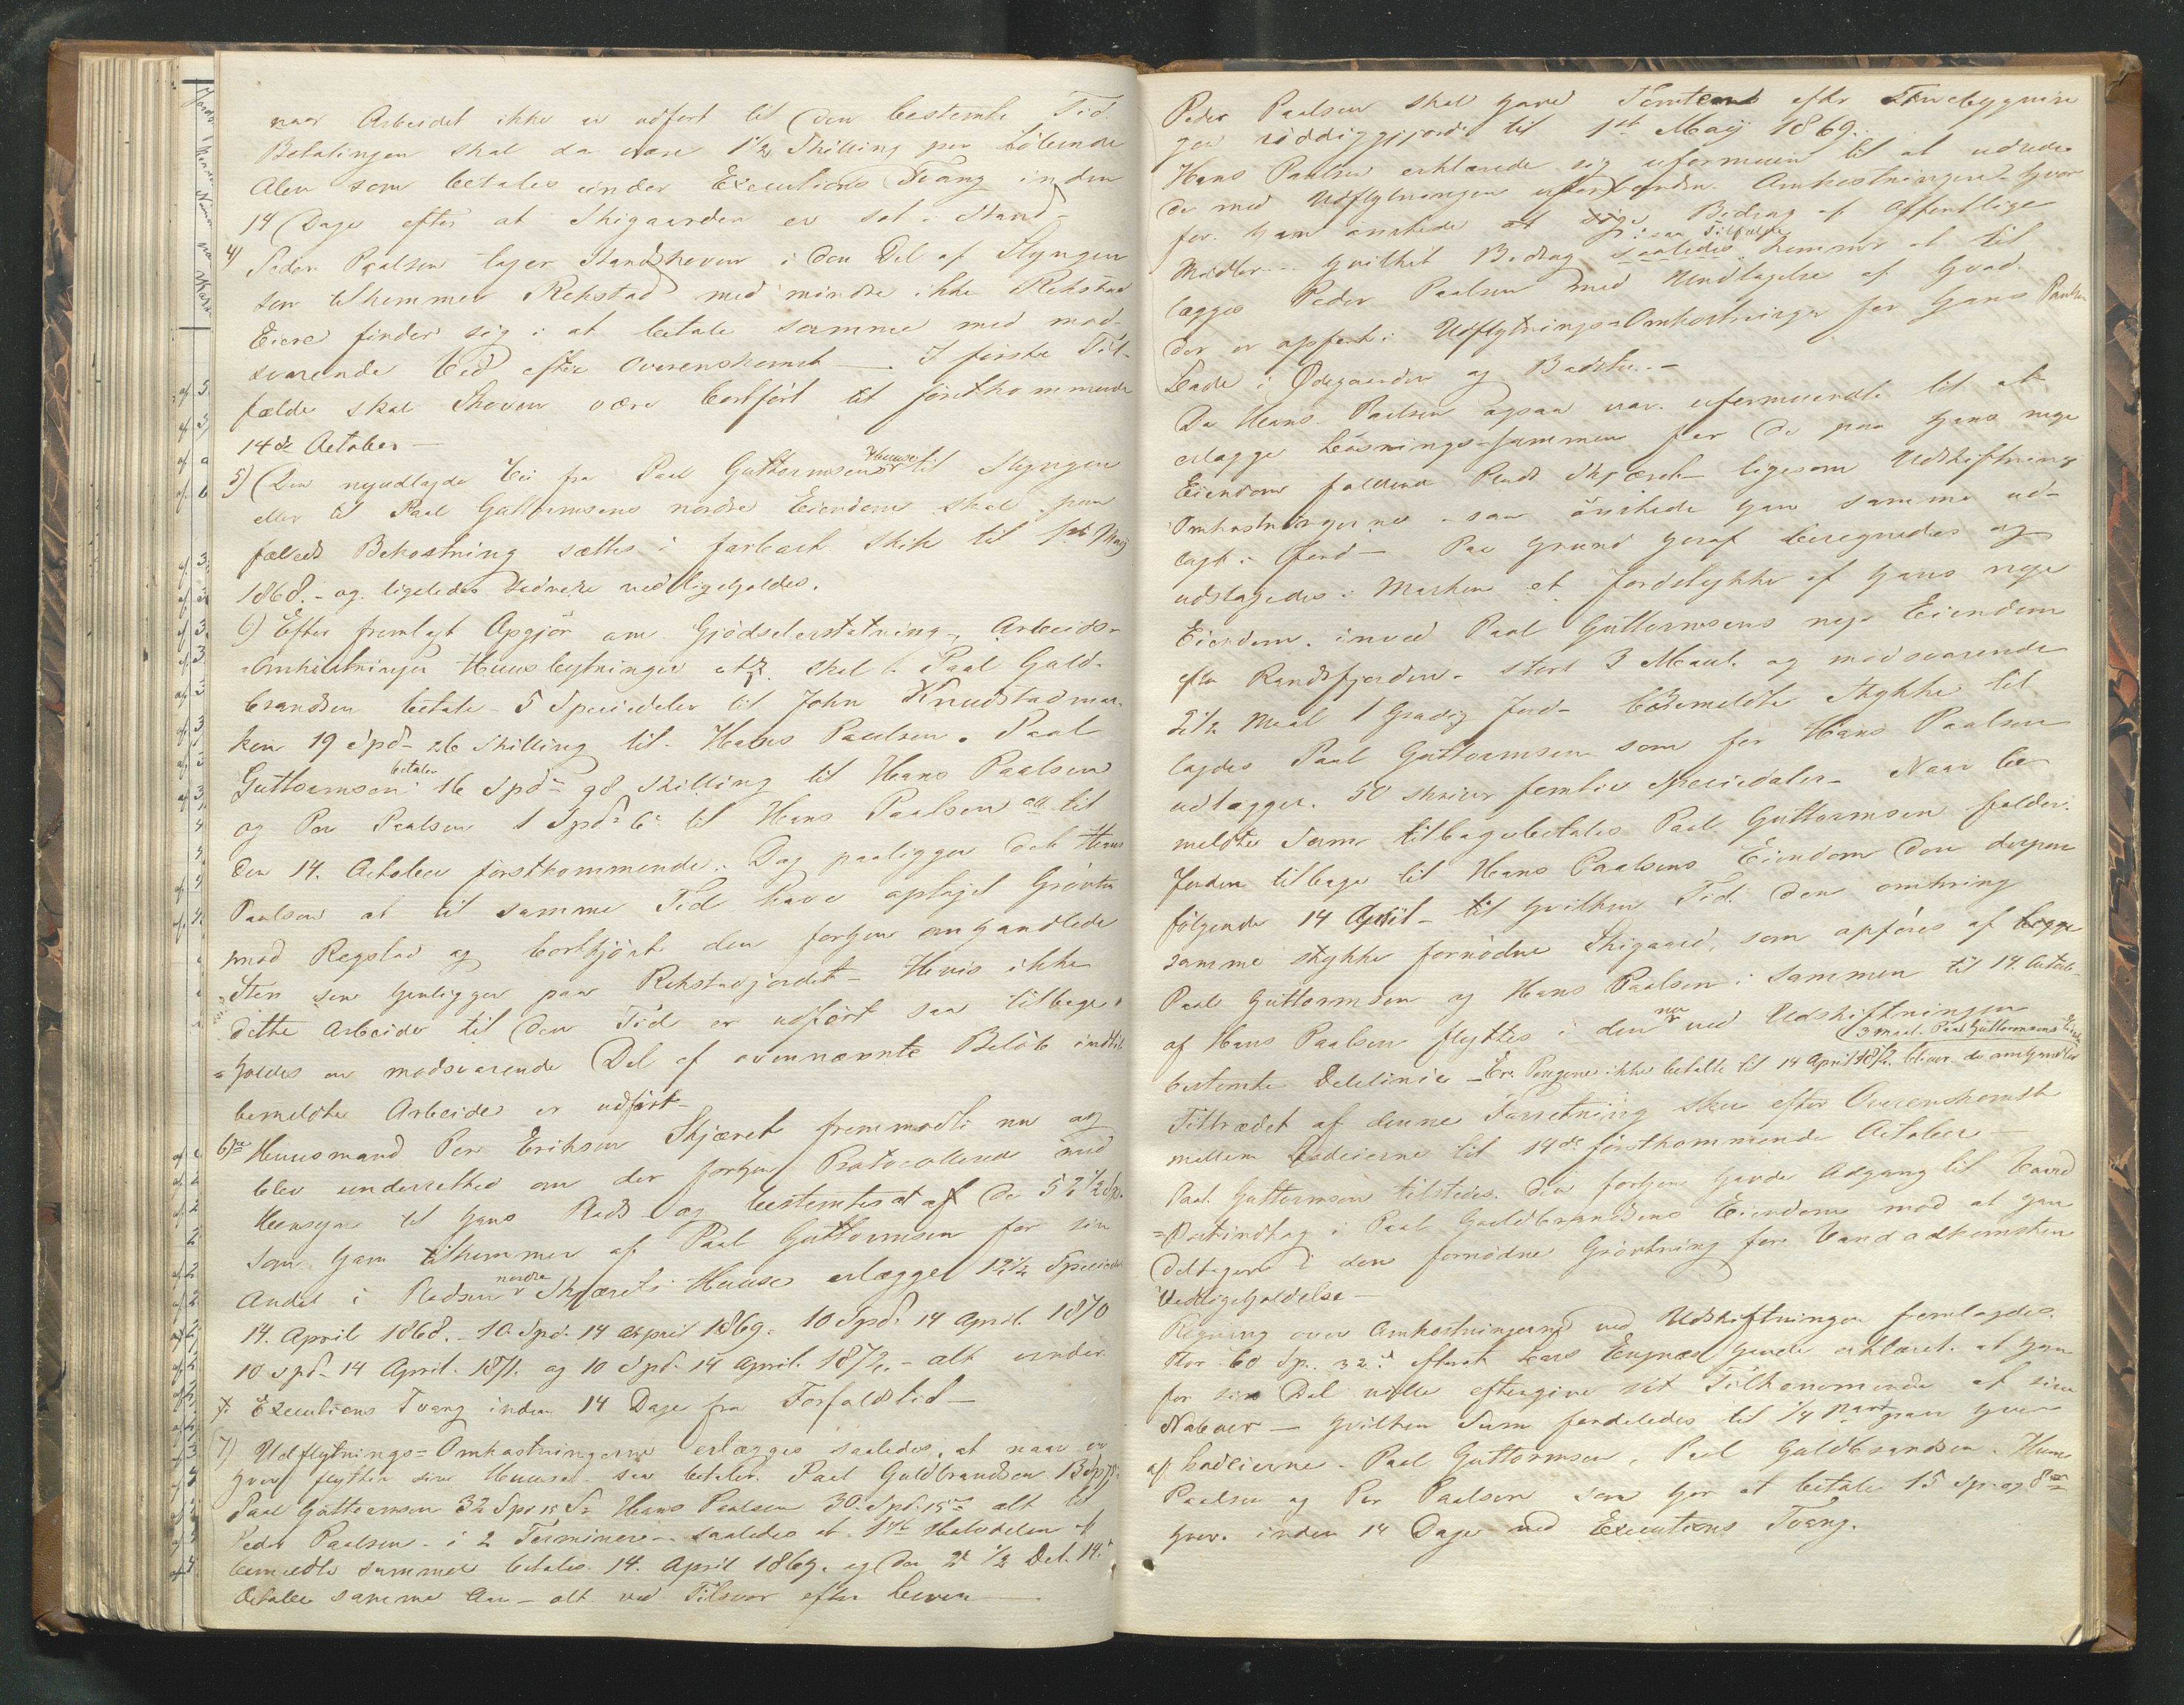 naar Arbeidet ikke er udfört til den bestemte Tid.
Betalingen skal da være 1½ Skilling per löbende
Alen som betales under Executions Tvang inden
14 Dage efter at Skigaarden er sat i Stand –
4) Peder Paalsen tager Standskoven i den Del af Slyngen
som tilkommer Rekstad med mindre ikke Rekstad
Eiere finder sig i at betale samme med mod-
svarende Ved efter Overenskomst – I förste Til-
fælde skal Skoven være bortfört til förstkommende
14de October –
5) Den nyudlagde Vei fra Paal Guttormsens Huuse til Slyngen
eller til Paal Guttormsens nordre Eiendom skal paa
fælleds Bekostning sættes i farbart Skik til 1ste Maij
1868. – og ligeledes sednere vedligeholdes.
6) Efter fremlagt Opgjör om Gjödselerstatning, Arbeids-
=Omkostninger Huusbytninger etz. skal Paal Guld-
brandsen betale 5 Speciedaler til John Knudstadmar-
ken 19 Spd. 26 Skilling til Hans Paulsen. Paal
Guttormsen betaler 16 Spd. 98 Skilling til Hans Paalsen
og Per Paalsen 1 Spd. 6 s til Hans Paalsen alt til
den 14. October förstkommende. Dog paaligger det Hans
Paalsen at til samme Tid have optaget Grövten
mod Regstad og bortkjört den forhen omhandlede
Sten som henligger paa Rekstadjordet – Hvis ikke
dette Arbeide til den Tid er udfört saa tilbage-
=holdes en modsvarende Del af ovennævnte Belöb indtil
bemeldte Arbeide er udfört –
6)a Huusmand Per Eriksen Skjæret fremmödte nu og
blev underrettet om det forhen Protocollerede med
Hensyn til hans Plads og bestemtes at af de 52½ Spd.
som ham tilkommer af Paal Guttormsen for sin
Andel i Pladsen nordre Skjærets Huuse erlægges 12½ Speciedaler
14. April 1868. – 10 Spd. 14 April 1869. 10 Spd. 14 April 1870
10 Spd. 14 April 1871. og 10 Spd. 14 April 1872. – alt under
Executions Tvang inden 14 Dage fra Forfaldstid –
7) Udflytnings=Omkostningerne erlægges saaledes, at naar en
hver flytter sine Huuse saa betaler Paal Guldbrandsen 13 Sp
Paal Guttormsen 32 Spd 15 s. Hans Paalsen 30. Spd. 15 s alt til
Peder Paalsen – i 2 Terminer – saaledes at 1ste Halvdelen af
bemeldte Summer betales 14. April 1869. og den 2d ½ Del 14.
October samme Aar – alt ved Tilsvar efter Loven –
Peder Paalsen skal have Tomten efter
gen ryddiggjordt til 1ste Maij 1869.
Hans Paalsen erklærede sig uformuen til at udrede
de med Udflytningen forbundne Omkostninger hvor-
for han önskede at söge Bidrag af offentlige
Midler – hvilket Bidrag i saa Tilfælde kommer at til
lægges Peder Paalsen med Undtagelse af hvad
der er opfört i Udflytnings=Omkostninger for Hans Paalsens
Lade i Ödegaarden og Badstue. –
Da Hans Paalsen ogsaa var uformuende til at
erlægge Lösnings-Summen for de paa hans nye
Eiendom faldende Plads Skjæret ligesom Udskiftnings
Omkostningerne – saa önskede han samme ud-
lagt i Jord – Paa Grund heraf beregnedes og
udstagedes i Marken et Jordstykke af hans nye
Eiendom inved Paal Guttormsens nye Eiendom
efter Randsfjorden – stort 3 Maal og modsvarende
2½ Maal 1 Gradig Jord – Bemeldte Stykke til
lagdes Paal Guttormsen som for Hans Paalsen
udlægger 50 skriver femti Speciedaler – Naar be
meldte Sum tilbagebetales Paal Guttormsen falder
Jorden tilbage til Hans Paalsens Eiendom den derpaa
fölgende 14 April – til hvilken Tid den omkring
samme Stykke fornödne Skigaard, som opföres af begge
Paal Guttormsen og Hans Paalsen i sammen til 14. Octob
af Hans Paalsen flyttes i den nu ved Udskiftningen
bestemte Delelinie – Ere Pengene ikke betalte til 14 April 1872. bliver de omhandlede
3 Maal Paal Guttormsens
Tiltrædet af denne Forretning skeer efter Overenskomst
mellem Lodeierne til 14de förstkommende October –
Paal Guttormsen tilstedes den forhen havde Adgang til Vand
i Paal Guldbrandsens Eiendom mod at han
deltager i den fornödne Gröftning for Vandadkomsten
Vedligeholdelse –
Regning over Omkostningerne ved Udskiftningen fremlagdes.
stor 60 Sp. 32 s. efterat Lars havde erklæret at han
for sin Del ville eftergive det Tilkommende af sine
Naboer – hvilken Sum fordeledes til ¼ Part paa hver
af Lodeierne. Paal Guttormsen, Paal Guldbrandsen. Hans
Paalsen og Per Paalsen som har at betale 15 Sp. og 8 s
hver. inden 14 Dage ved Executions Tvang.